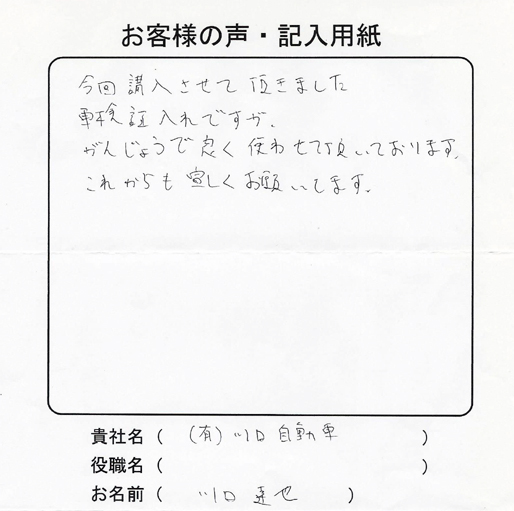 お客様の声・記入用紙
今回購入させて頂きました
車検証入れですが、
がんじょうで良く使わせて頂いております。
これからも宜しくお願いします。
貴社名( (有)川口自動車 )
役職名( )
お名前( 川口達也 )